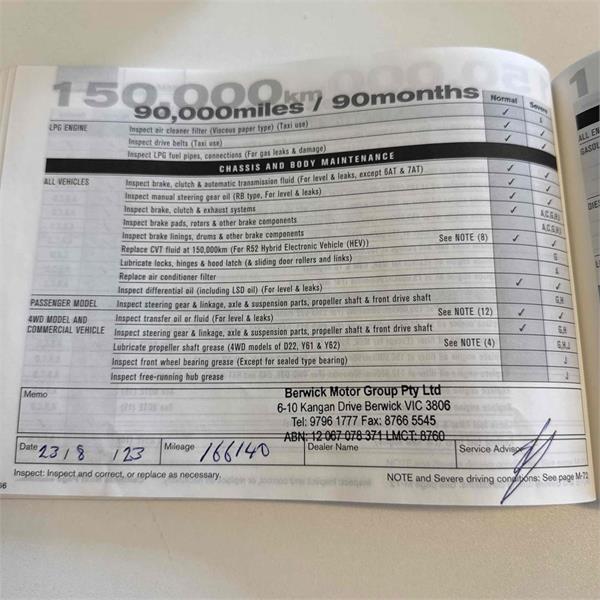 150,000km
90,000miles / 90months
Normal Severe
LPG ENGINE Inspect air cleaner filter (Viscous paper type) (Taxi use) ✓
Inspect drive belts (Taxi use) ✓
Inspect LPG fuel pipes, connections (For gas leaks & damage) ✓
CHASSIS AND BODY MAINTENANCE
ALL VEHICLES Inspect brake, clutch & automatic transmission fluid (For level & leaks, except 6AT & 7AT) ✓ ✓
Inspect manual steering gear oil (RB type, For level & leaks) ✓ ✓
Inspect brake, clutch & exhaust systems ✓
Inspect brake pads, rotors & other brake components
Inspect brake linings, drums & other brake components
Replace CVT fluid at 150,000km (For R52 Hybrid Electronic Vehicle (HEV)) See NOTE (8) ✓ ✓
Lubricate locks, hinges & hood latch (& sliding door rollers and links) G
Replace air conditioner filter A
Inspect differential oil (including LSD oil) (For level & leaks) ✓ ✓
PASSENGER MODEL Inspect steering gear & linkage, axle & suspension parts, propeller shaft & front drive shaft G,H
4WD MODEL AND Inspect transfer oil or fluid (For level & leaks) See NOTE (12) ✓ ✓
COMMERCIAL VEHICLE Inspect steering gear & linkage, axle & suspension parts, propeller shaft & front drive shaft ✓ G,H
Lubricate propeller shaft grease (4WD models of D22, Y61 & Y62) See NOTE (4) G,H,J
Inspect front wheel bearing grease (Except for sealed type bearing) J
Inspect free-running hub grease J
Memo
Berwick Motor Group Pty Ltd
6-10 Kangan Drive Berwick VIC 3806
Tel: 9796 1777 Fax: 8766 5545
ABN: 12 067 078 371 LMCT: 8760
Date 23/8/23 Mileage 166140 Dealer Name Service Advisor
Inspect: Inspect and correct, or replace as necessary. NOTE and Severe driving conditions: See page M-72